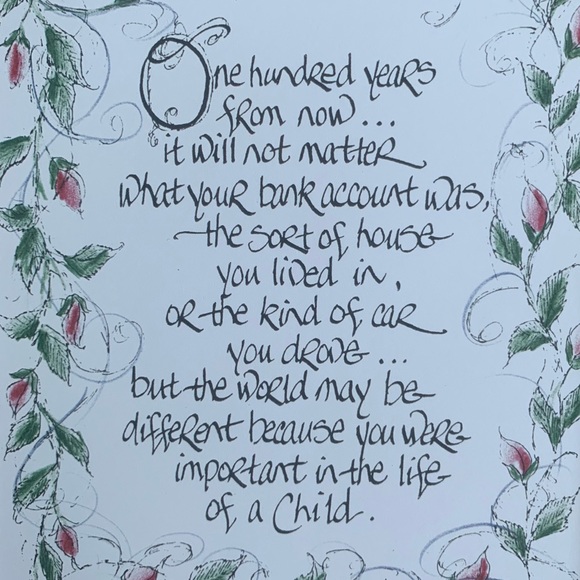 One hundred years
from now...
it will not matter
what your bank account was,
the sort of house
you lived in,
or the kind of car
you drove...
but the world may be
different because you were
important in the life
of a Child.